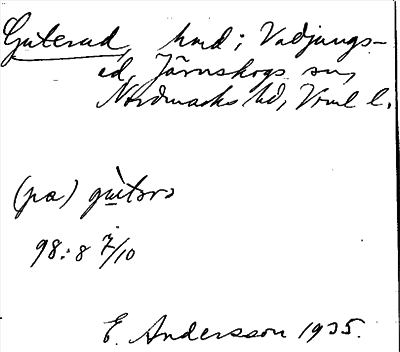 Guterud, hmd; Vadjungs-
ed, Järnskogs sn,
Nordmarks hd, Vrml l.
(pa) gùtərə
98:8 7/10
E. Andersson 1935.